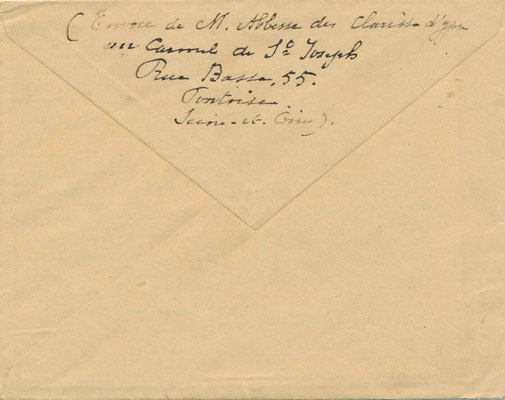 (Envoi de M. Abbesse des Clarisses d'Ypres
au Carmel de St Joseph
Rue Basse, 55.
Pontoise
Seine-et-Oise).